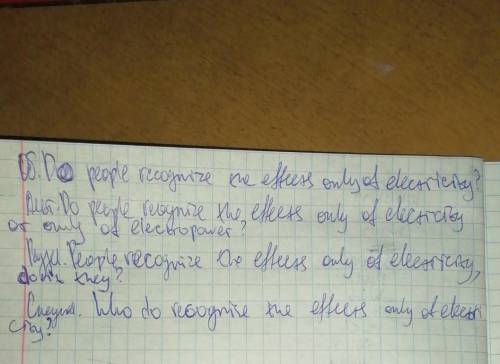 Об. Do people recognize the effects only of electricity?
Альт. Do people recognize the effects only of electricity
or only of electropower?
Разд. People recognize the effects only of electricity,
don't they?
Специал. Who do recognize the effects only of electri
city?